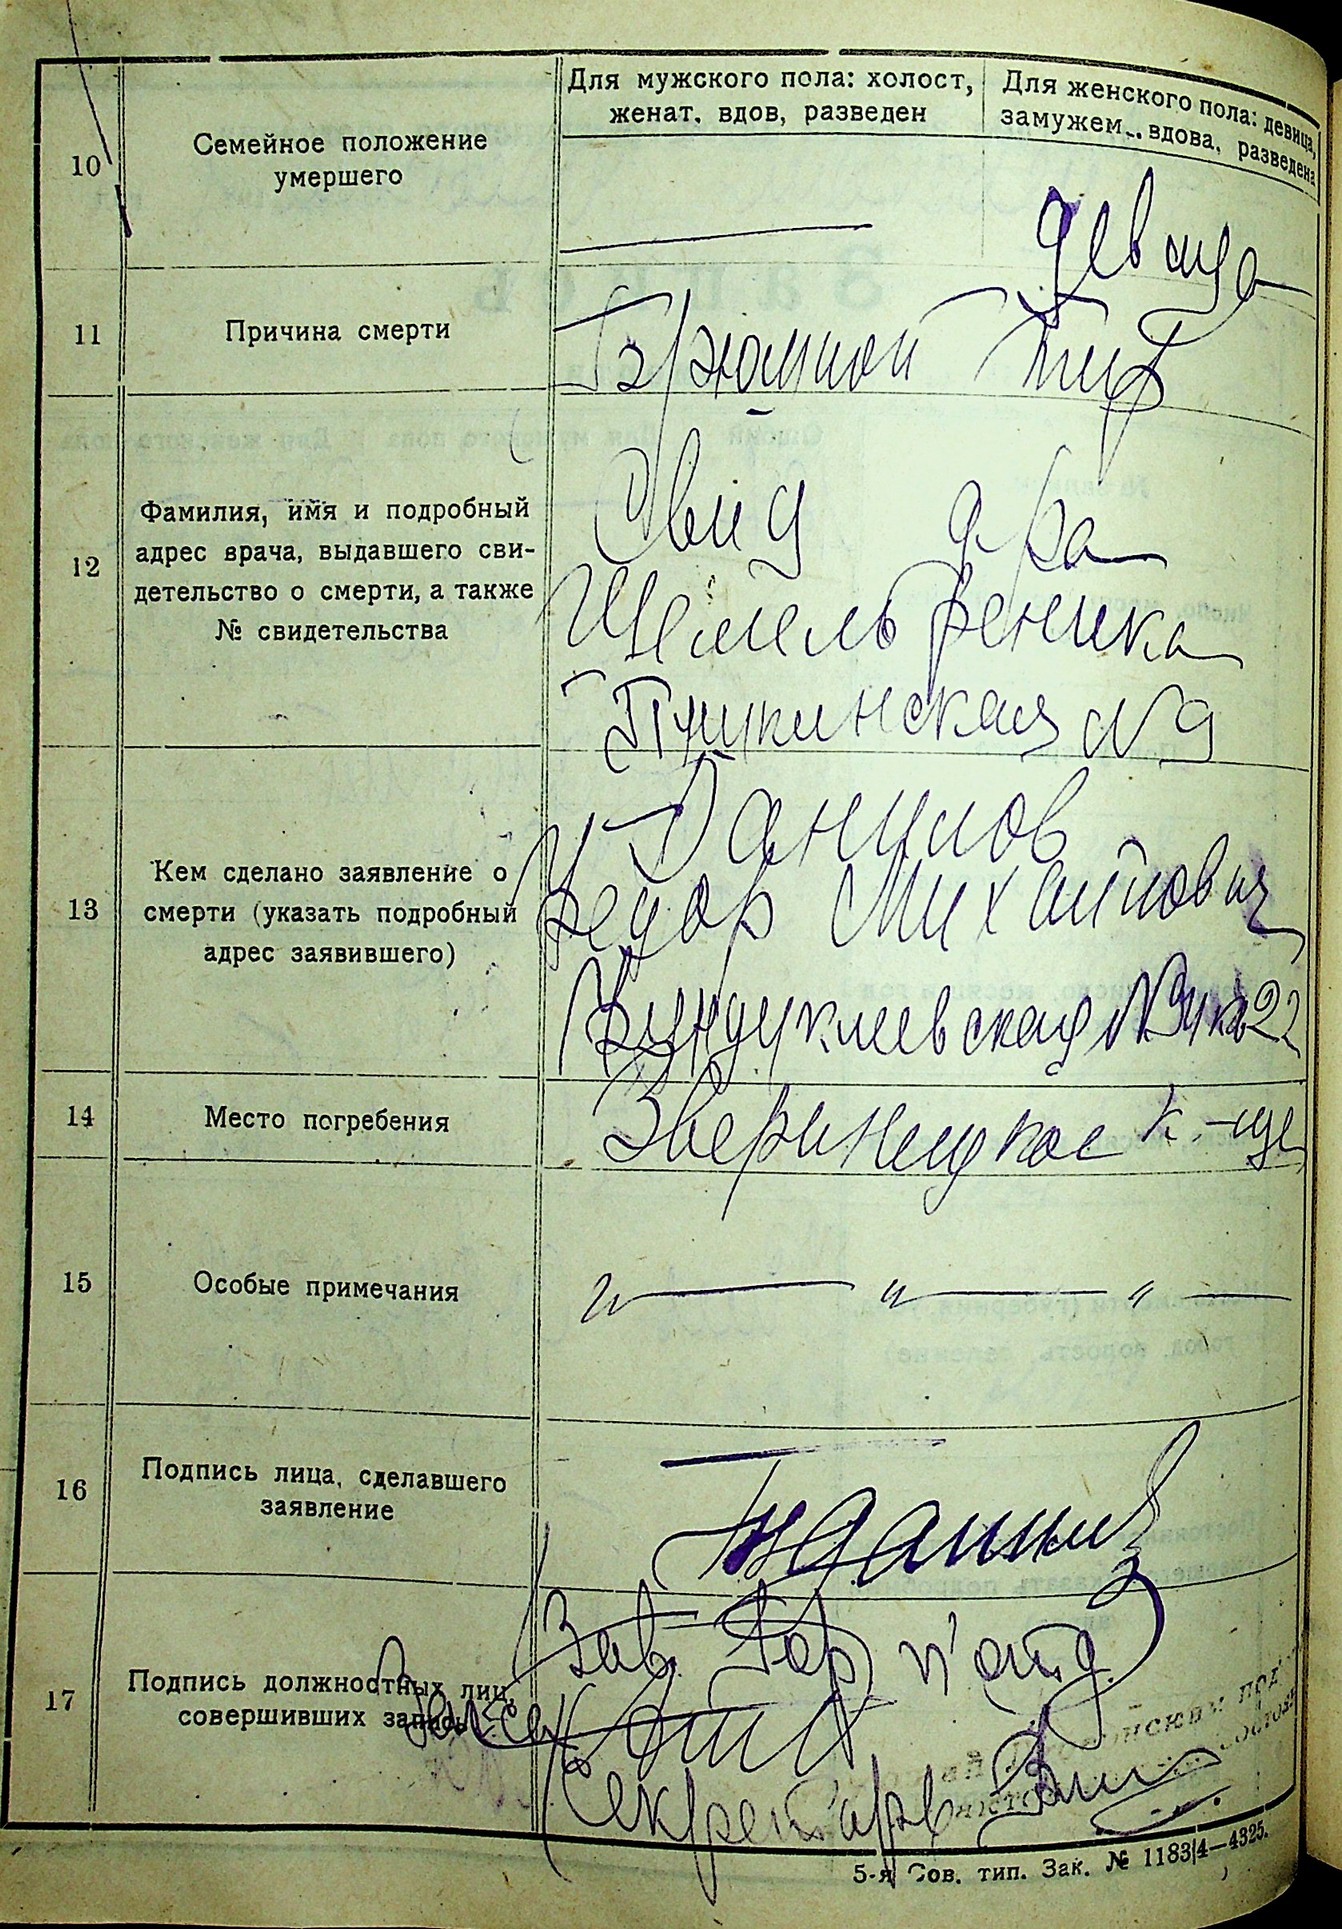 Для мужского пола: холост,
женат, вдов, разведен
Для женского пола: девица,
замужем, вдова, разведена
10
Семейное положение
умершего
девица
11
Причина смерти
Брюшной тиф
12
Фамилия, имя и подробный
адрес врача, выдавшего сви-
детельство о смерти, а также
№ свидетельства
Свид д-ра
Пушкинская № 9
13
Кем сделано заявление о
смерти (указать подробный
адрес заявившего)
Данилов
Федор Михайлович
Фундуклеевская № 22
14
Место погребения
Зверинецкое к-ще
15
Особые примечания
" — " — " —
16
Подпись лица, сделавшего
заявление
17
Подпись должностных лиц,
совершивших запись
Зав. Гор п'отд
Секретарь
5-я Сов. тип. Зак. № 1183/4—4325.